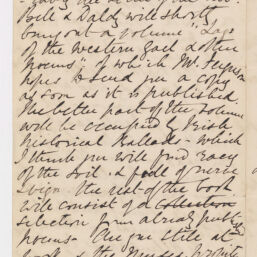 Bell & Daldy will shortly
bring out a volume "Lays
of the Western Gael & other
Poems" of which Mr. Ferguson
hopes to send you a copy
as soon as it is published.
The better part of the volume
will be occupied by Irish
Historical Ballads - which
I think you will find racy
of the soil & full of nerve
& vigor. The rest of the book
will consist of a collection
selection from already publ
poems - Are you still at
work